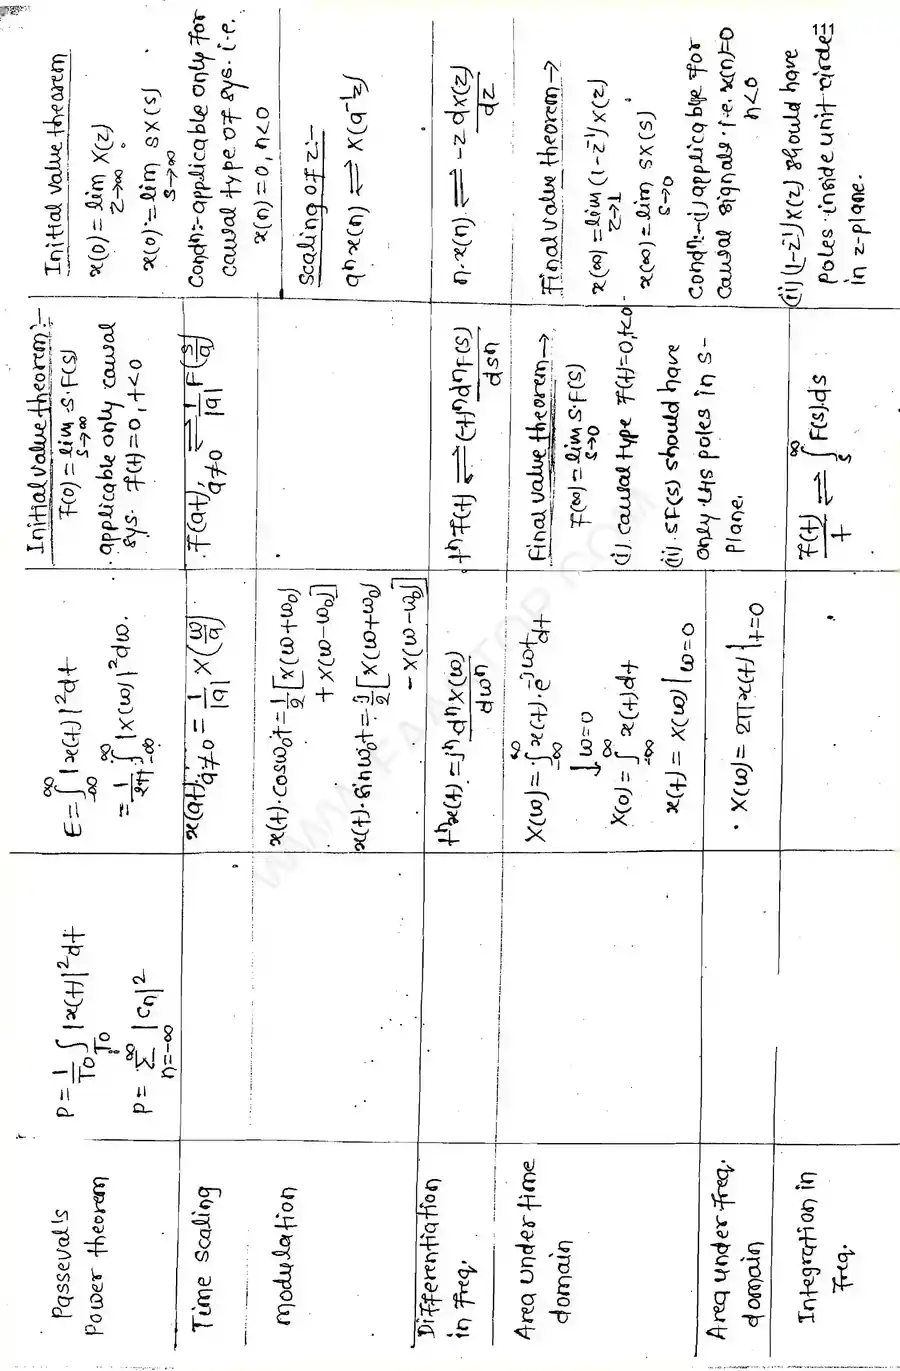 Passeval's
Power theorem
P = 1/T0 ∫T0 |x(t)|^2 dt
P = ∑_{n=-∞}^{∞} |Cn|^2
E = ∫_{-∞}^{∞} |x(t)|^2 dt
= 1/2π ∫_{-∞}^{∞} |X(ω)|^2 dω.
Initial value theorem:-
F(0) = lim_{s→∞} s.F(s)
applicable only causal
sys. F(t)=0, t<0
Initial value theorem
x(0) = lim_{z→∞} X(z)
x(0) = lim_{s→∞} sX(s)
Condn:- applicable only for
causal type of sys. i.e.
x(n)=0, n<0
Time scaling
x(at), a≠0 = 1/|a| X(ω/a)
F(at), a≠0 ⇌ 1/|a| F(s/a)
modulation
x(t).cosω0t = 1/2 [X(ω+ω0)
+ X(ω-ω0)]
x(t).sinω0t = j/2 [X(ω+ω0)
- X(ω-ω0)]
Scaling of z:-
a^n.x(n) ⇌ X(a^-1 z)
Differentiation
in freq.
t^n x(t) = j^n d^n X(ω)/dω^n
t^n F(t) ⇌ (-1)^n d^n F(s)/ds^n
n.x(n) ⇌ -z dX(z)/dz
Area under time
domain
X(ω) = ∫_{-∞}^{∞} x(t).e^{-jωt} dt
↓ ω=0
X(0) = ∫_{-∞}^{∞} x(t)dt
x(t) = X(ω)|ω=0
Final value theorem→
F(∞) = lim_{s→0} s.F(s)
(i). causal type F(t)=0, t<0.
(ii). SF(s) should have
only LHS poles in s-
plane.
Final value theorem→
x(∞) = lim_{z→1} (1-z^-1) X(z)
x(∞) = lim_{s→0} sX(s)
Condn:-(i) applicable for
causal signals i.e. x(n)=0
n<0
(ii) (1-z^-1)X(z) should have
poles inside unit circle
in z-plane.
Area under freq.
domain
X(ω) = 2πx(t)|t=0
Integration in
Freq.
F(t)/t ⇌ ∫_{s}^{∞} F(s).ds